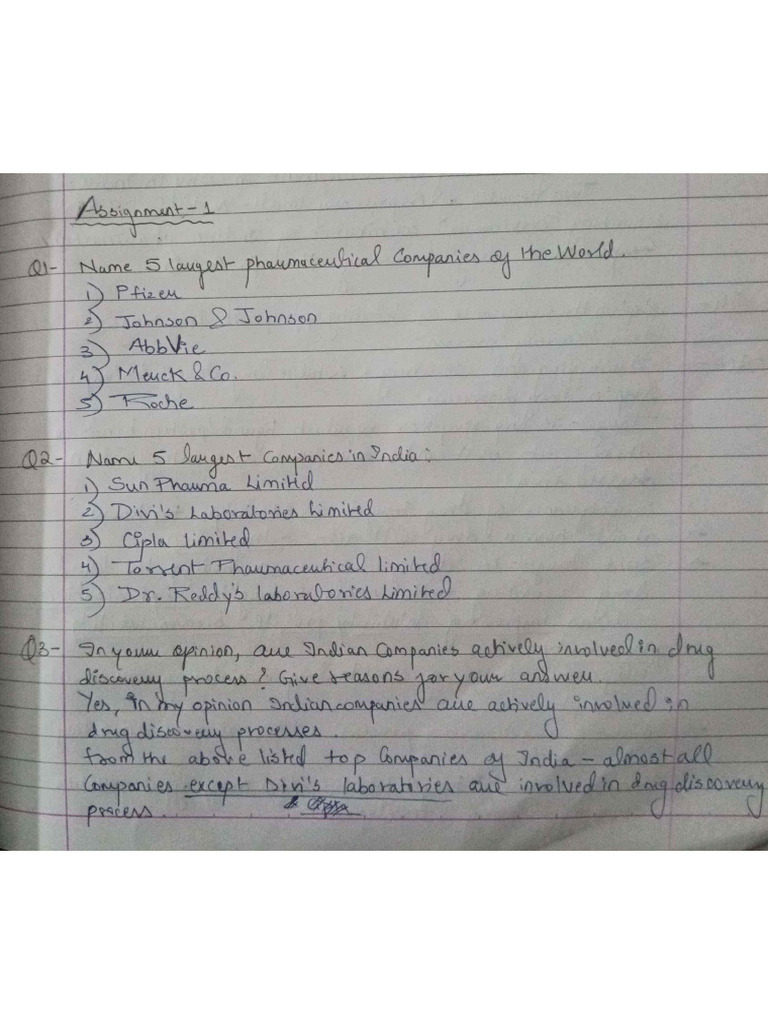 Assignment-1
Q1- Name 5 largest pharmaceutical Companies of the World.
1) Pfizer
2) Johnson & Johnson
3) AbbVie
4) Merck & Co.
5) Roche
Q2- Name 5 largest Companies in India:
1) Sun Pharma Limited
2) Divi's Laboratories Limited
3) Cipla Limited
4) Torrent Pharmaceutical limited
5) Dr. Reddy's laboratories Limited
Q3- In your opinion, are Indian Companies actively involved in drug
discovery process? Give reasons for your answer.
Yes, In my opinion Indian companies are actively involved in
drug discovery processes.
from the above listed top Companies of India - almost all
Companies except Divi's laboratories are involved in drug discovery
process.